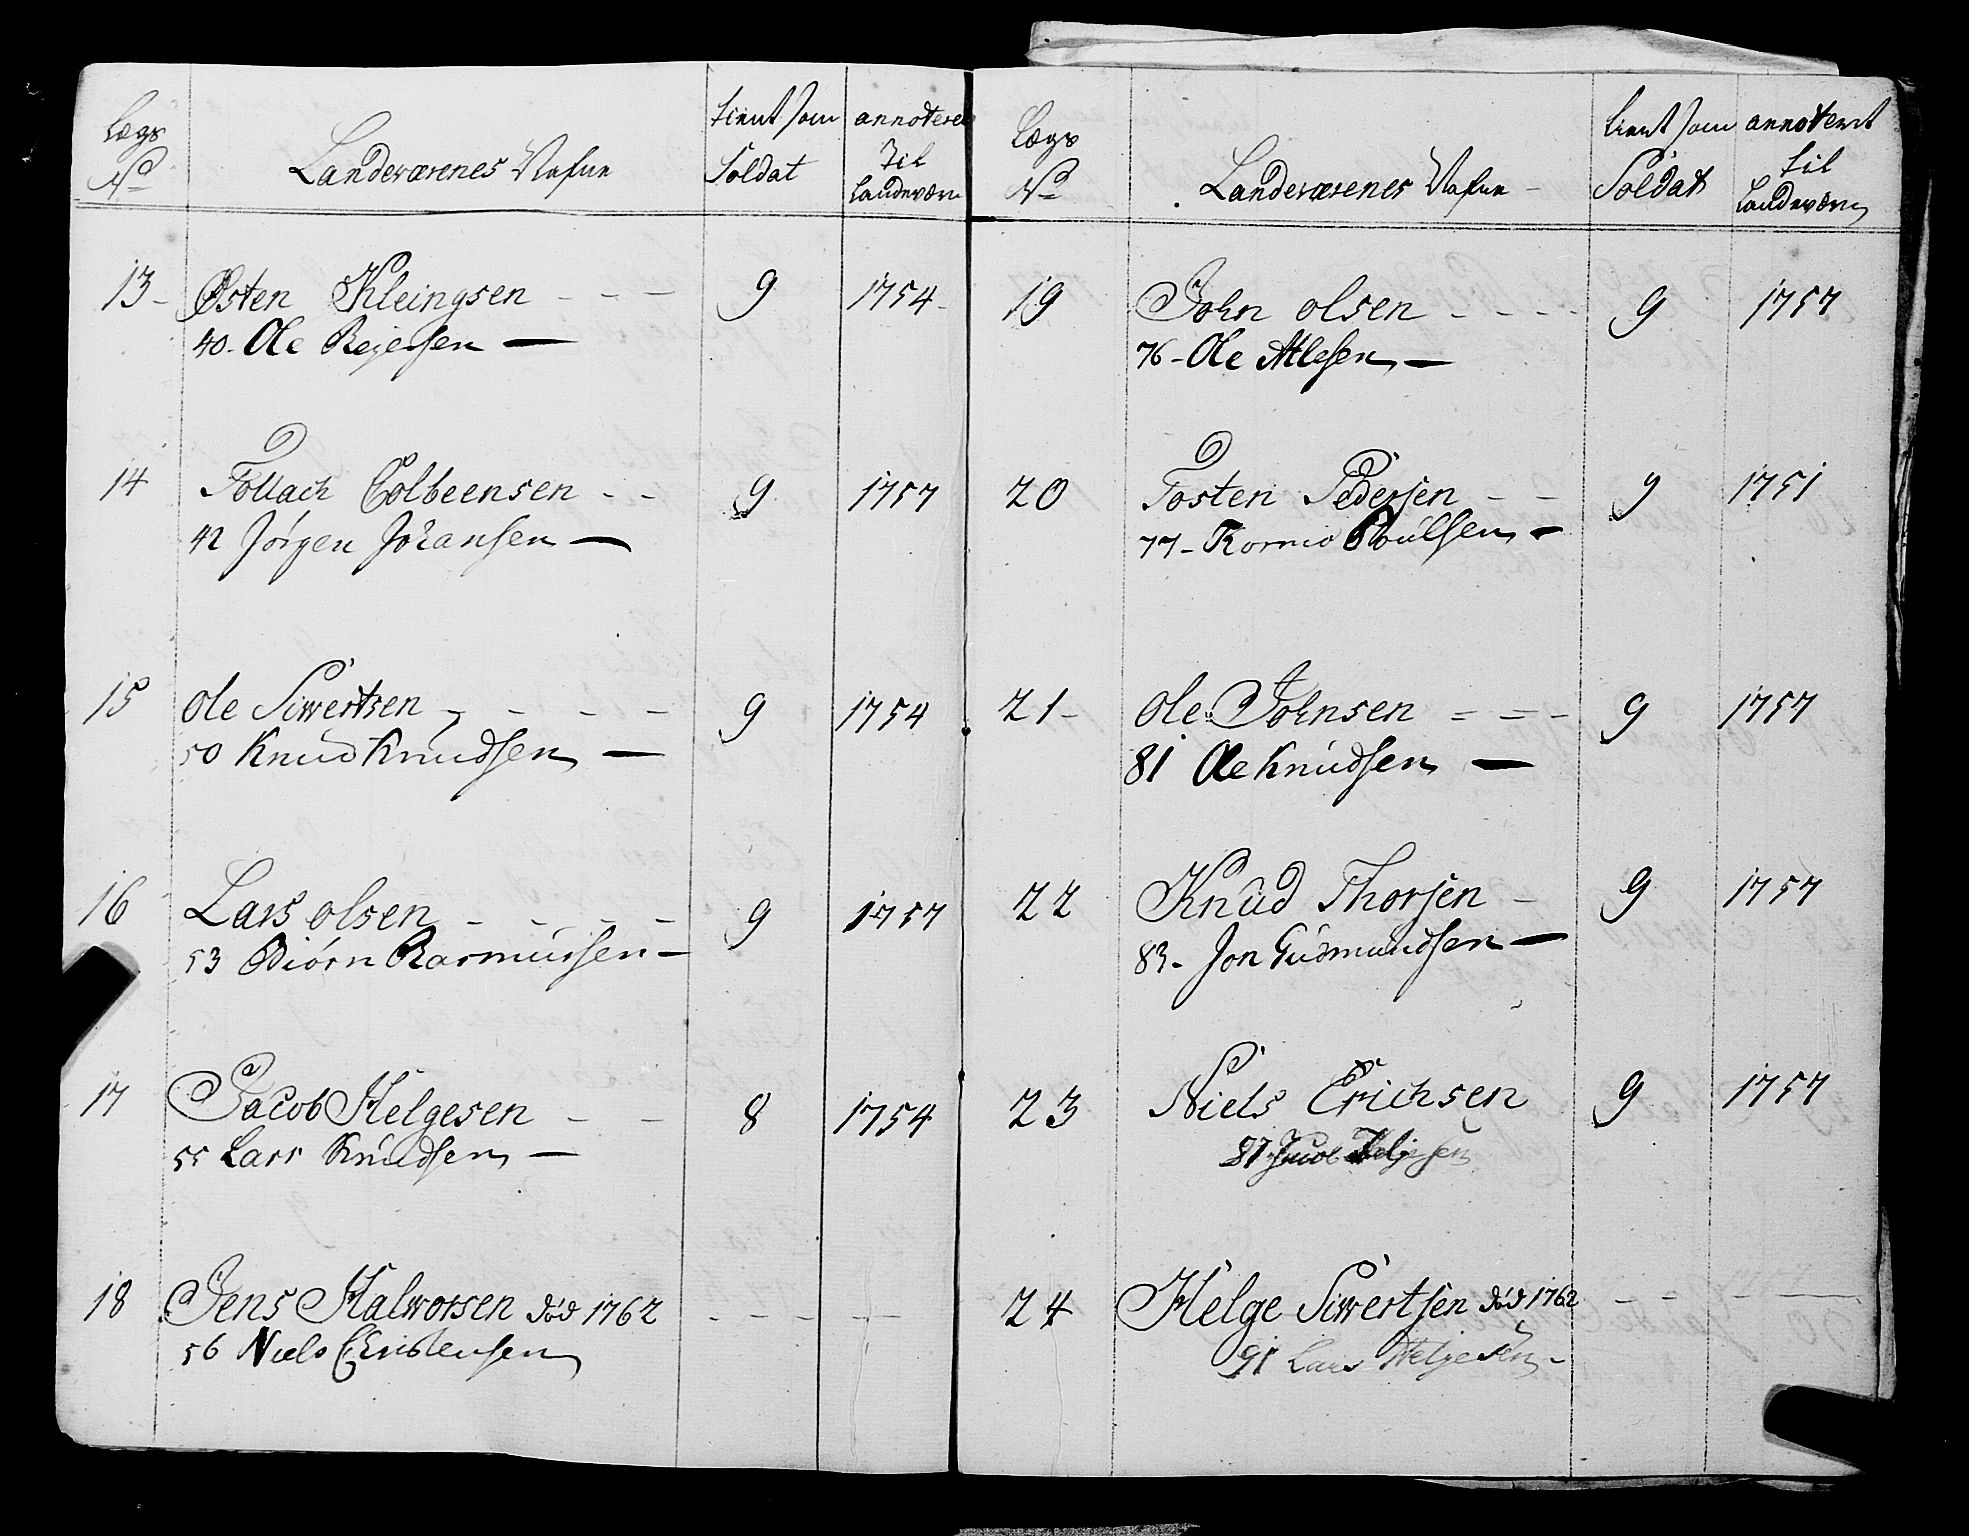 Lægs No Landeværenes Nafne tient som Soldat annoteret til Landeværn
13- Østen Kleingsen - - - 9 1754-
40- Ole Rejersen —
14 Tollach Colbeensen - - 9 1757
42 Jørgen Johansen —
15 Ole Siwertsen - - - - 9 1754
50 Knud Knudsen —
16 Lars olsen - - - - 9 1757
53 Biørn Rasmussen —
17 Jacob Helgesen - - 8 1754
55 Lars Knudsen —
18 Jens Halworsen død 1762 - - - - -
56 Niels Christensen
Lægs No Landeværenes Nafne - tient som Soldat annoteret til Landeværn
19 John olsen - - - - 9 1757
76- Ole Atlesen —
20 Tosten Pedersen - - 9 1751
77- Poulsen —
21- Ole Johnsen = = - 9 1757
81 Ole Knudsen —
22 Knud Thorsen - 9 1757
83- Jon Gudmundsen —
23 Niels Erichsen 9 1757
87 Jacob Heljesen
24 Helge Siwertsen død 1762 - - - —
91 Lars Heljesen -